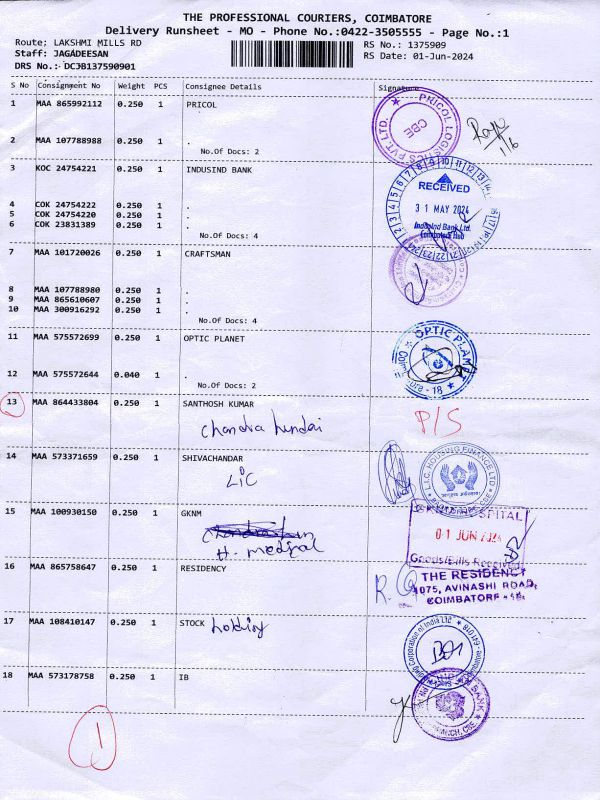 THE PROFESSIONAL COURIERS, COIMBATORE
Delivery Runsheet - MO - Phone No.:0422-3505555 - Page No.:1
Route: LAKSHMI MILLS RD
RS No.: 1375909
Staff: JAGADEESAN
RS Date: 01-Jun-2024
DRS No.: DCJB137590901
S No Consignment No Weight PCS Consignee Details Signature
1 MAA 865992112 0.250 1 PRICOL
PRICOL LOGISTICS PVT. LTD. ★
CBE
2 MAA 107788988 0.250 1 .
No.Of Docs: 2
3 KOC 24754221 0.250 1 INDUSIND BANK
RECEIVED
31 MAY 2024
IndusInd Bank Ltd.
Coimbatore Hub
4 COK 24754222 0.250 1 .
5 COK 24754220 0.250 1 .
6 COK 23831389 0.250 1 .
No.Of Docs: 4
7 MAA 101720026 0.250 1 CRAFTSMAN
8 MAA 107788980 0.250 1 .
9 MAA 865610607 0.250 1 .
10 MAA 300916292 0.250 1 .
No.Of Docs: 4
11 MAA 575572699 0.250 1 OPTIC PLANET
OPTIC PLANET
12 MAA 575572644 0.040 1 .
No.Of Docs: 2
13 MAA 864433804 0.250 1 SANTHOSH KUMAR
P/S
14 MAA 573371659 0.250 1 SHIVACHANDAR
LIC
L.I.C. HOUSING FINANCE LTD.
15 MAA 100930150 0.250 1 GKNM
H. medical
HOSPITAL
01 JUN 2024
Goods/Bills Received
16 MAA 865758647 0.250 1 RESIDENCY
THE RESIDENCY
1075, AVINASHI ROAD,
COIMBATORE - 18.
17 MAA 108410147 0.250 1 STOCK holding
Corporation of India Ltd
18 MAA 573178758 0.250 1 IB
BANK
1